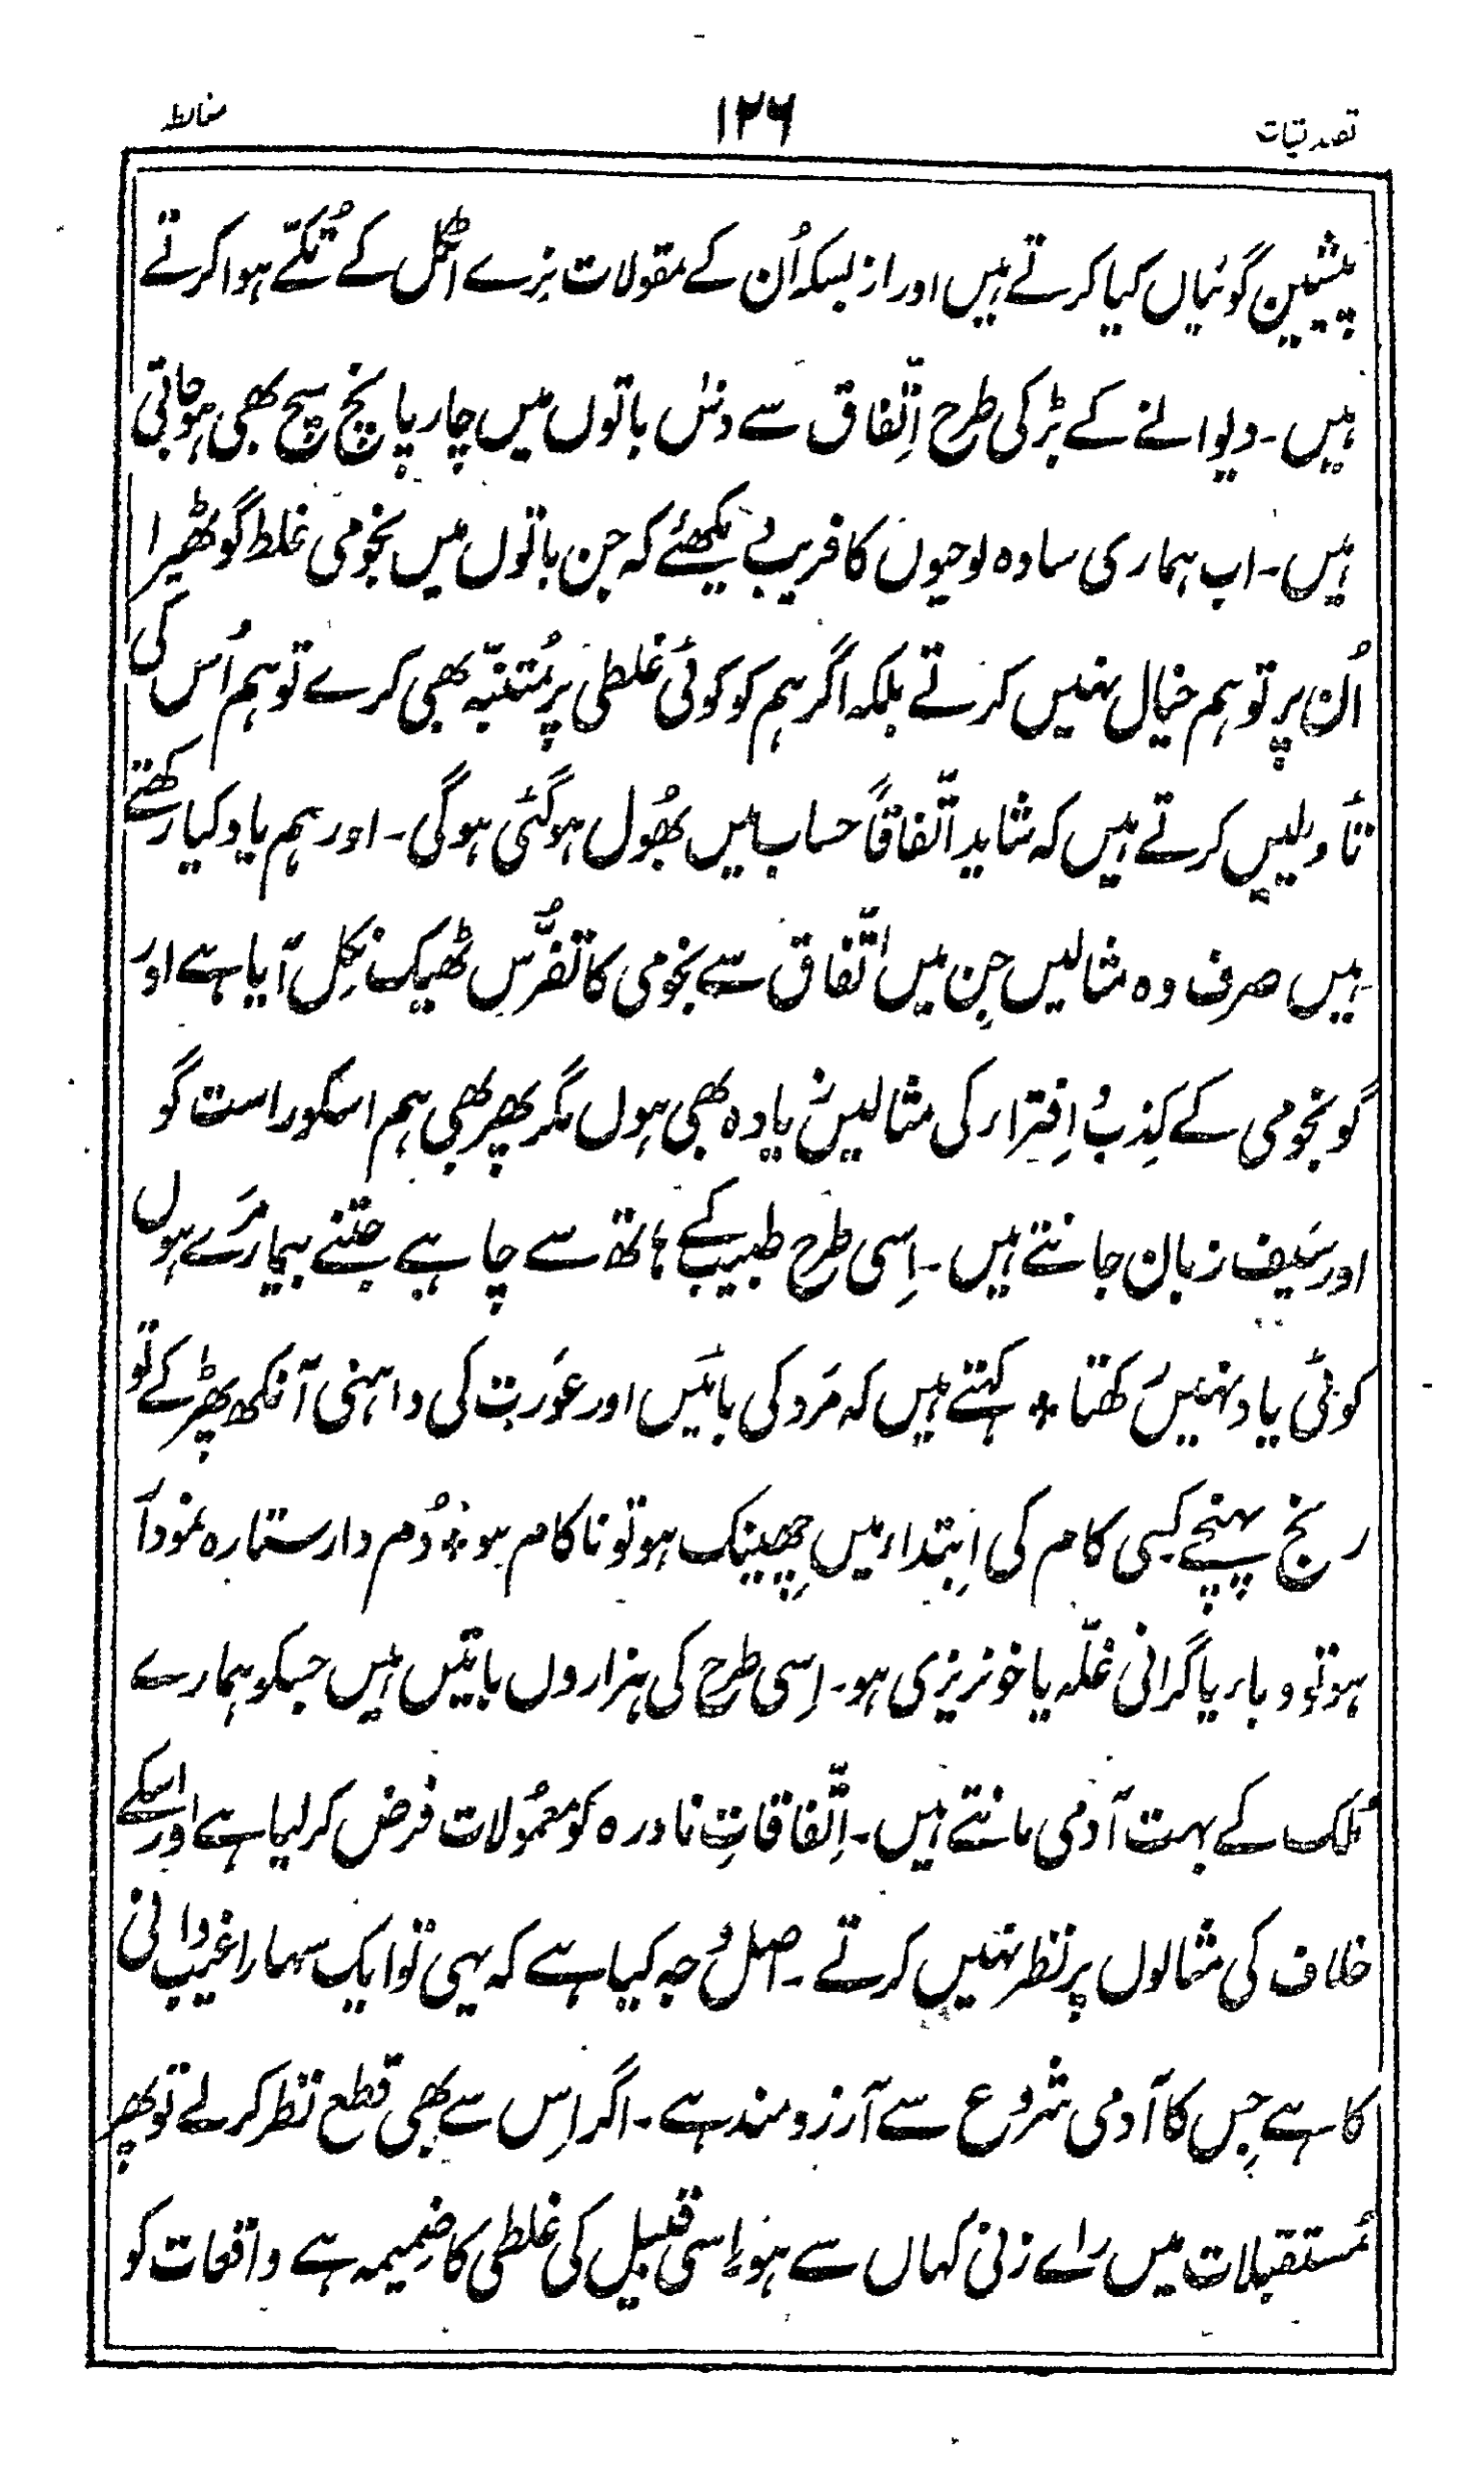 تصدیقات ۱۲۶ مغالطہ
پیشین گوئیاں کیا کرتے ہیں اور ازبسکہ اُن کے مقولات نِرے اٹکل کے تُکّے ہوا کرتے
ہیں۔ دیوانے کے بڑ کی طرح اِتّفاق سے دس باتوں میں چار پانچ سچ بھی ہو جاتی
ہیں۔ اب ہماری سادہ لوحیوں کا فریب دیکھئے کہ جن باتوں میں نجومی غلط گو ٹھیرا
اُن پر تو ہم خیال نہیں کرتے بلکہ اگر ہم کو کوئی غلطی پر مُتنبّہ بھی کرے تو ہم اُس کی
تأویلیں کرتے ہیں کہ شاید اتّفاقاً حساب میں بھُول ہو گئی ہوگی۔ اور ہم یاد کیا رکھتے
ہیں صرف وہ مثالیں جِن میں اتّفاق سے نجومی کا تفرُّس ٹھیک نکِل آیا ہے اور
گو نجومی کے کِذب وُ اِفترار کی مثالیں زیادہ بھی ہوں مگر پھر بھی ہم اسکو راست گو
اور سَیف زبان جانتے ہیں۔ اِسی طرح طبیب کے ہاتھ سے چاہے جتنے بیمار مَرے ہوں
کوئی یاد نہیں رکھتا * کہتے ہیں کہ مَرد کی بائیں اور عَورت کی داہنی آنکھ پھڑکے تو
رنج پہنچے کسی کام کی اِبتداء میں چھِینک ہو تو ناکام ہو * دُم دار ستارہ نمودار
ہو تو وباء یا گرانی غلّہ یا خونریزی ہو۔ اِسی طرح کی ہزاروں باتیں ہیں جسکو ہمارے
مُلک کے بہت آدمی مانتے ہیں۔ اِتّفاقاتِ نادرہ کو معمُولات فرض کر لیا ہے اور اسکے
خلاف کی مثالوں پر نظر نہیں کرتے۔ اصل وُجہ کیا ہے کہ یہی تو ایک سہارا غیب دانی
کا ہے جِس کا آدمی شروع سے آرزومند ہے۔ اگر اِس سے بھی قطع نظر کر لے تو پھر
مُستقبلات میں راے زنی کہاں سے ہو۔ اِسی قبیل کی غلطی کا ضمِیمہ ہے واقعات کو